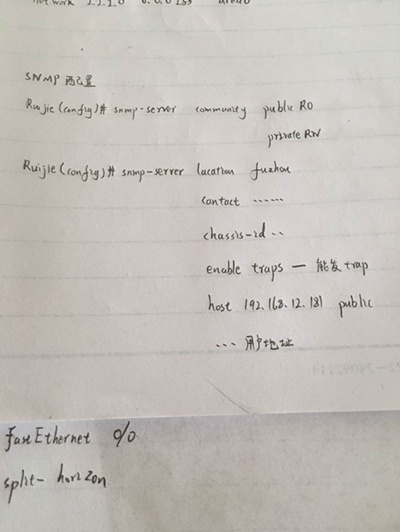 network 1.1.1.0 0.0.0.255 area0
SNMP 配置
Ruijie (config)# snmp-server community public RO
private RW
Ruijie (config)# snmp-server location fuzhou
contact ......
chassis-id ..
enable traps — 能发 trap
host 192.168.12.181 public
... 用户地址
fastEthernet 0/0
split-horizon